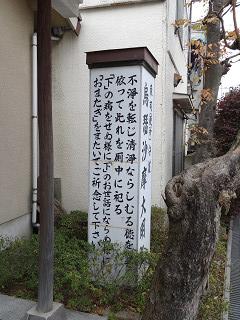 烏瑟沙摩大明
不浄を転じ清浄ならしむる徳を
依って此れを厠中に祀る
「下」の病をせぬ様に「下」のお世話にならぬ様に
"おまたぎ"をまたいでご祈念して下さい